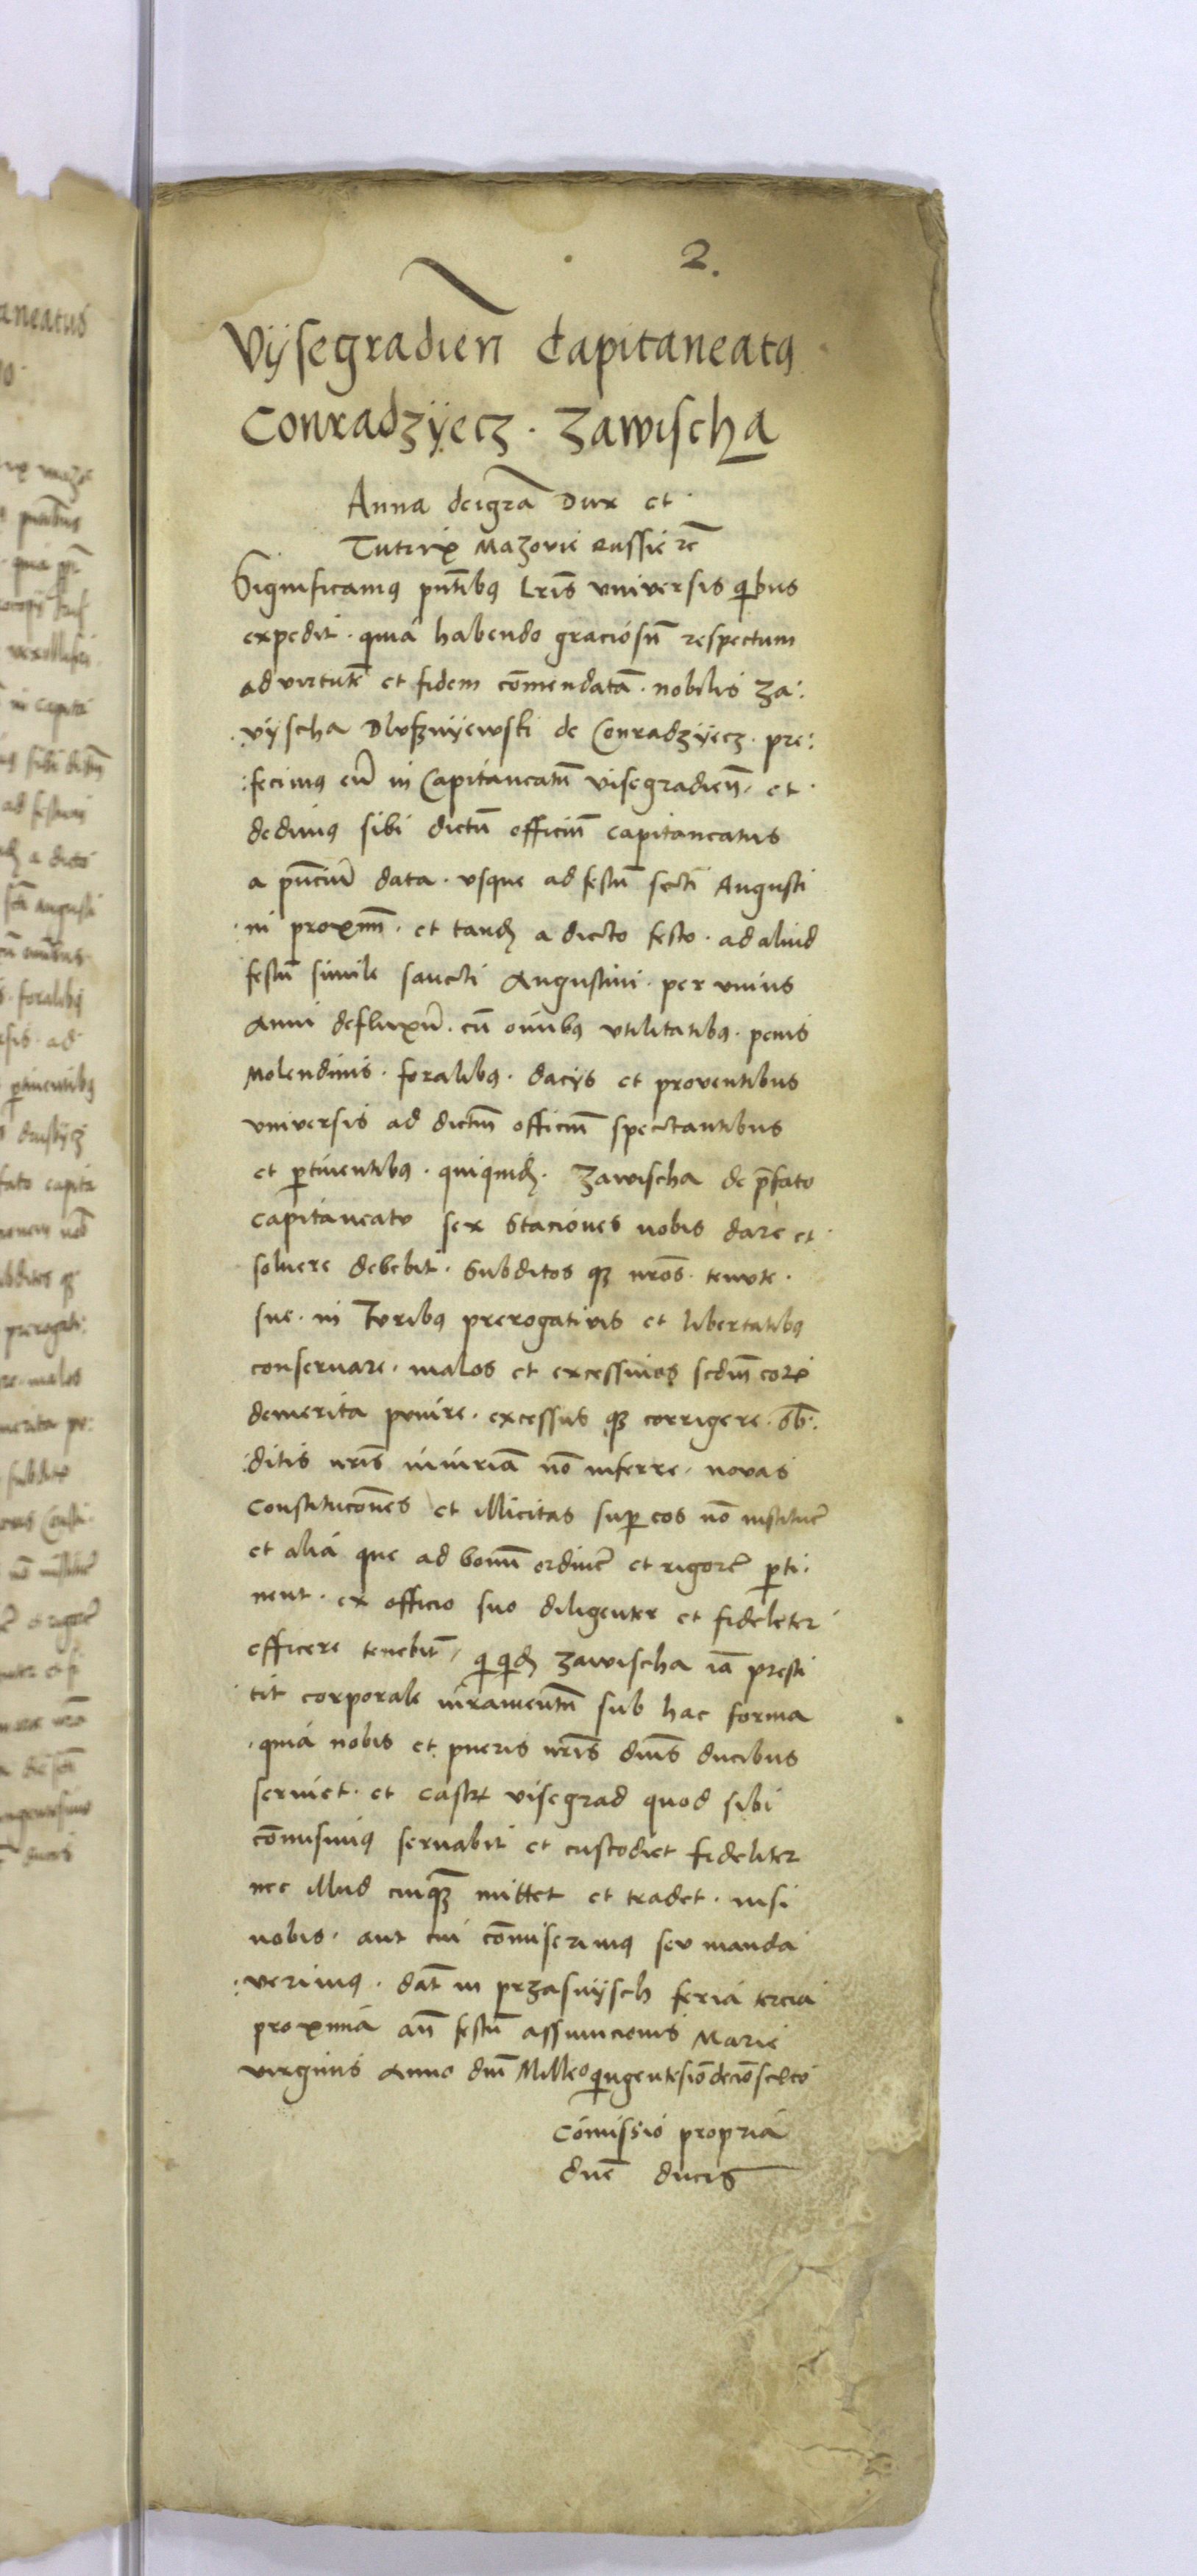 2.
Vÿsegradien̄ Capitaneatꝯ
Conradzÿecz · Zawischa
Anna deigr̄a Dux et
Tutrix Mazovie Russie rc̄
Significamꝯ pn̄tibꝯ Lr̄is vniversis quibus
expedit · quia habendo graciosū respectum
ad virtutē et fidem cōmendatā · nobilis Za:
vÿscha Dlusznÿewski de Conradzÿecz · pre:
:fecimus eū in Capitaneatū visegradien̄ · et
dedimꝯ sibi dictū officiū capitaneatus
a pn̄ciū data · vsque ad festū sc̄ti Augusti
ni proximū · et tandē a dicto festo · ad aliud
festū simile sancti Augustini · per vnius
Anni defluxū · cū om̄ibꝯ vtilitatibꝯ · penis
Molendinis · foralibꝯ · dacijs et proventibus
vniversis ad dictū officiū spectantibus
et ꝑtinentibꝯ · quiquidē · Zawischa de p̄fato
capitaneatu sex Staciones nobis dare et
soluere debebit · Subditos qꝫ nr̄os · tenute ·
sue · in Juribꝯ prerogativis et libertatibꝯ
conseruare · malos et excessiuos sedm̄ eorꝝ
demerita punire · excessus qꝫ corrigere · sb̄:
:ditis nr̄is iniuriā nō inferre · novas
Constitucōnes et illicitas suꝑ eos nō instituē
et alia que ad bonū ordinē et rigorē ꝑti:
nent · ex officio suo diligenter et fideleter
efficere tenebit̄ / quiquidē Zawischa iā presti
tit corporale iuramentū sub hac forma
· quia nobis et pueris nr̄is dn̄is ducibus
seruiet · et castrū visegrad quod sibi
cōmisimꝯ seruabit et custodiet fideliter
nec illud cuiqꝫ mittet et tradet · nisi
nobis · aut cui cōmiserimꝯ seu manda
:verimꝯ · dat̄ in przasnÿsch feria tercia
proxima an̄ festū assumcionis Marie
virginis Anno dn̄i Milleoquingentesiōdeciōsexto
Cōmissio propria
dn̄e ducis